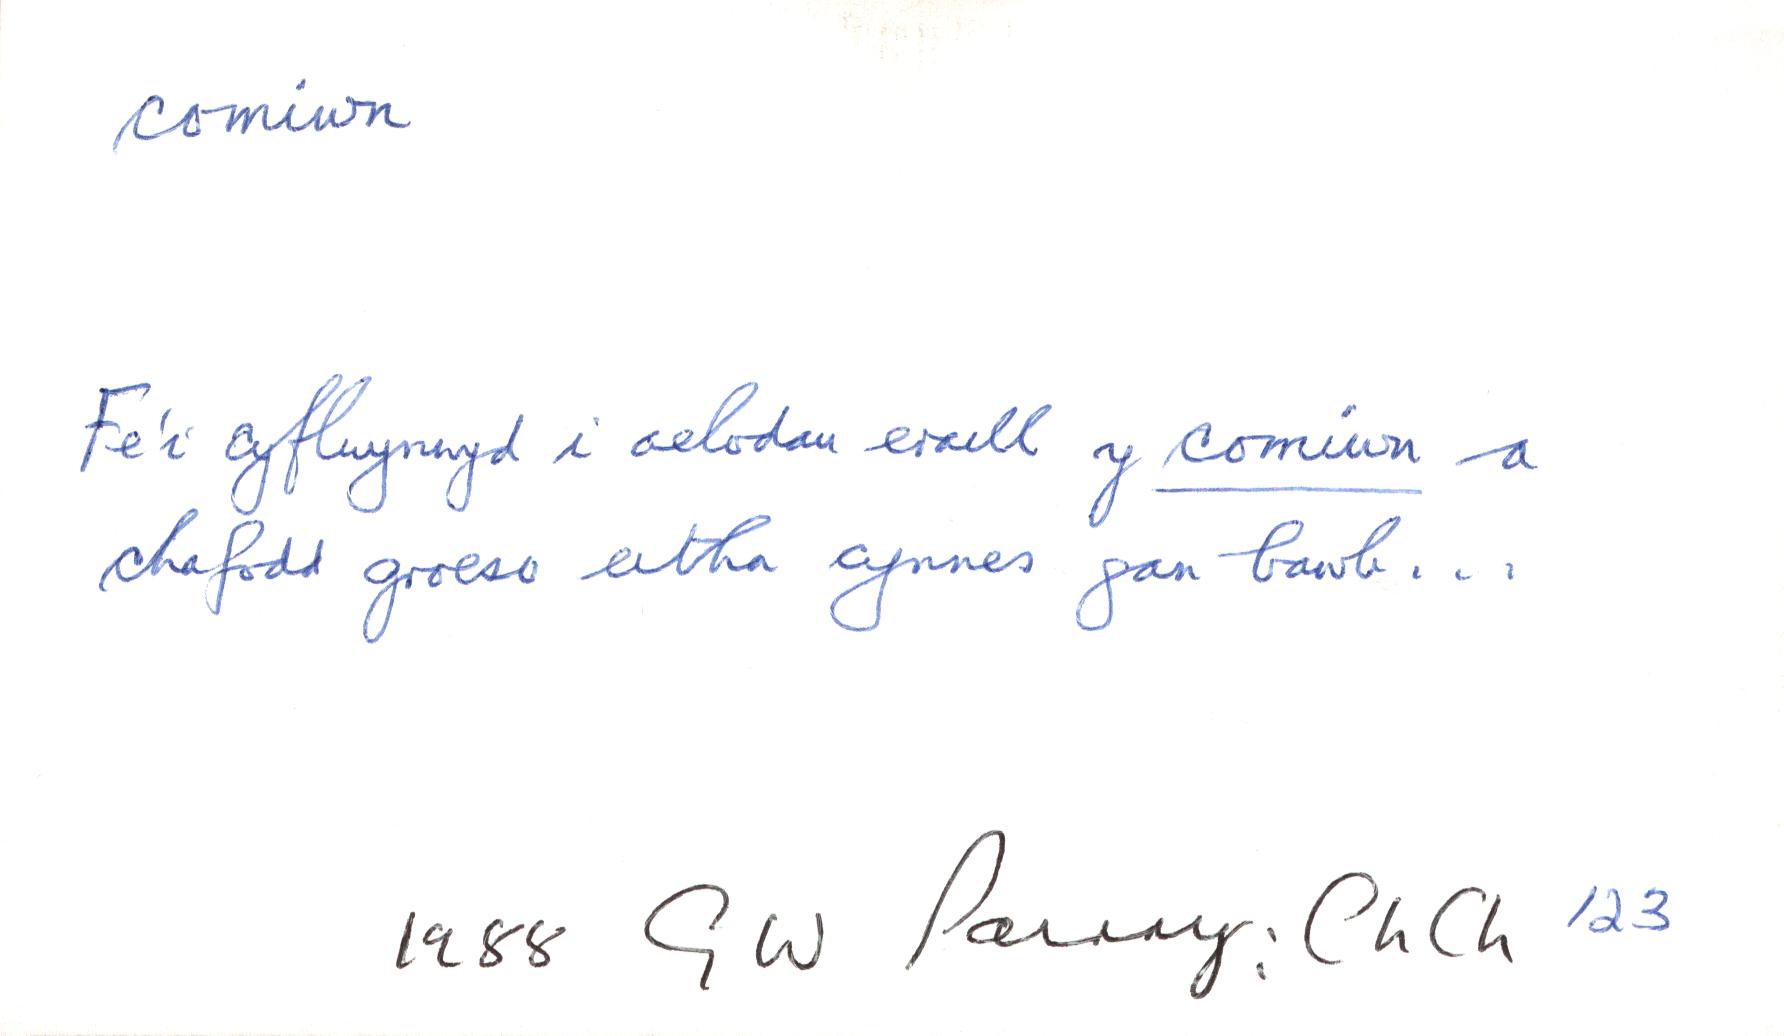 comiwn
Fe'i cyflwynwyd i aelodau eraill y comiwn a
chafodd groeso eitha cynnes gan bawb...
1988 GW Parry: ChCh 123